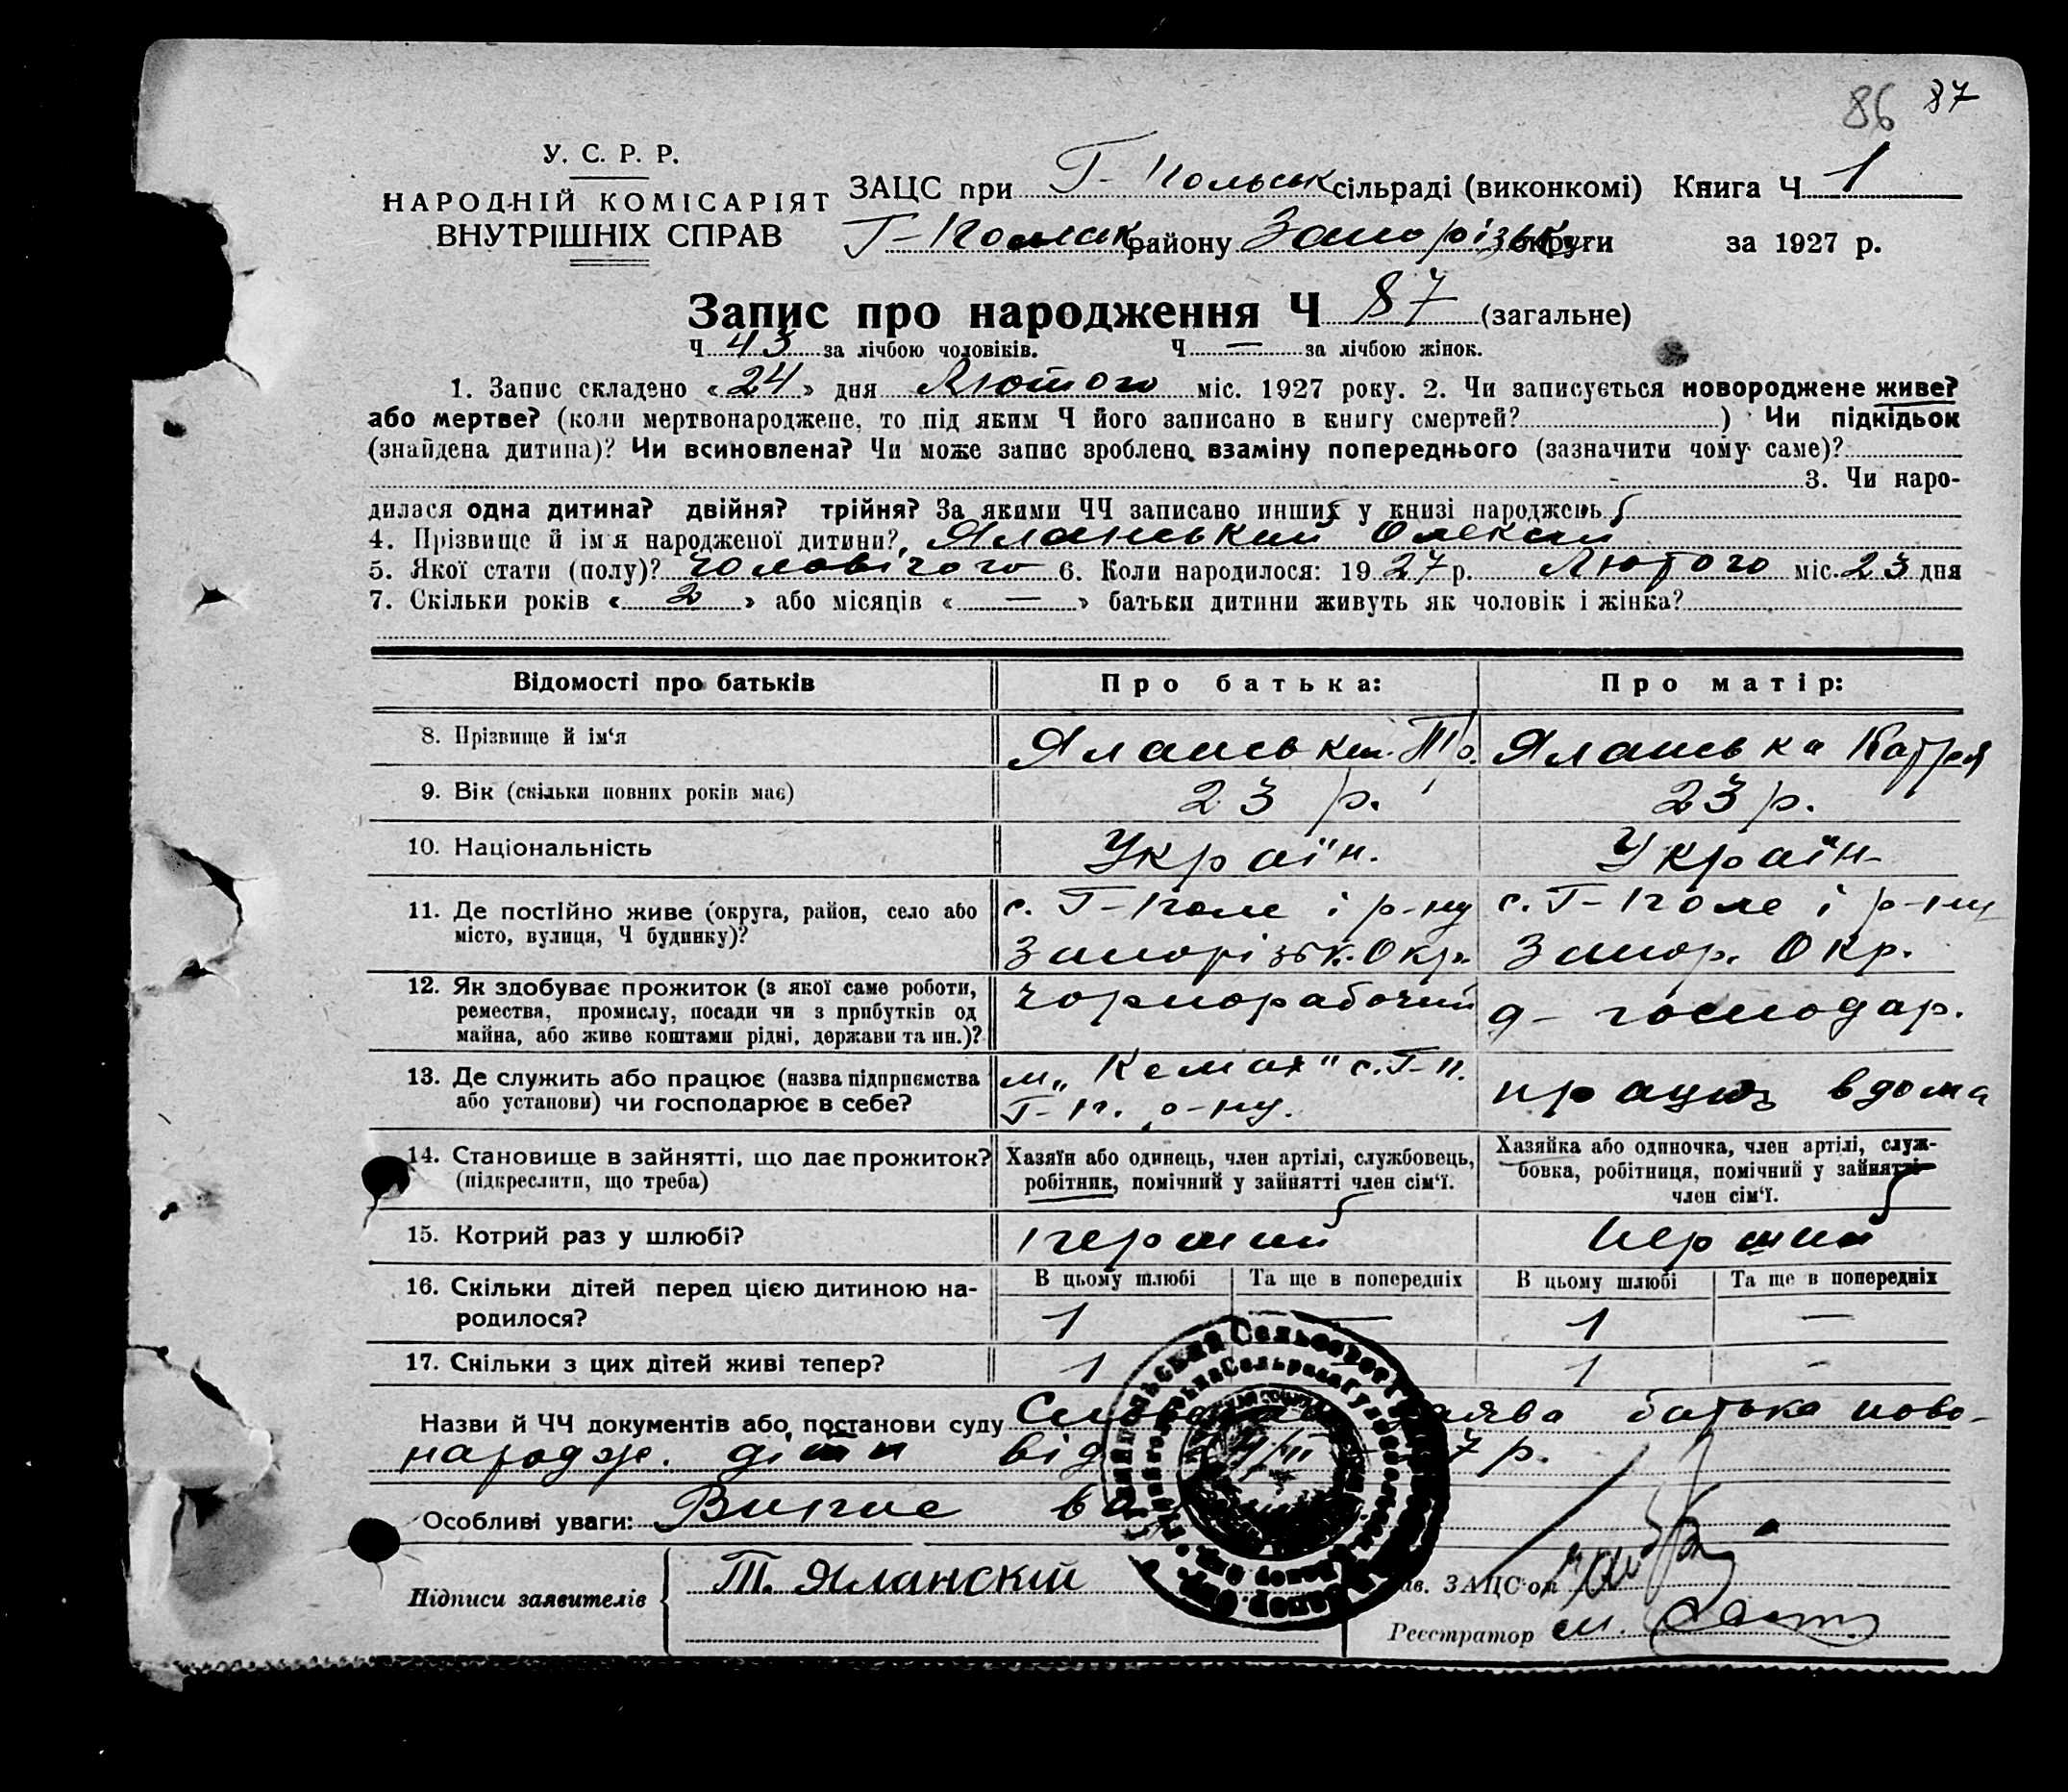 86 87
У. С. Р. Р.
НАРОДНІЙ КОМІСАРІЯТ
ВНУТРІШНІХ СПРАВ
ЗАЦС при Г-Польськ сільраді (виконкомі) Книга Ч 1
Г-Польськ району Запорізьк округи за 1927 р.
Запис про народження Ч 87 (загальне)
Ч 43 за лічбою чоловіків. Ч — за лічбою жінок.
1. Запис складено «24» дня Лютого міс. 1927 року. 2. Чи записується новороджене живе?
або мертве? (коли мертвонароджене, то під яким Ч його записано в книгу смертей? ) Чи підкідьок
(знайдена дитина)? Чи всиновлена? Чи може запис зроблено взаміну попереднього (зазначити чому саме)?
3. Чи наро-
дилася одна дитина? двійня? трійня? За якими ЧЧ записано инших у книзі народжень
4. Прізвище й ім'я народженої дитини? Яланський Олексій
5. Якої стати (полу)? Чоловічого 6. Коли народилося: 1927 р. Лютого міс. 23 дня
7. Скільки років «2» або місяців «—» батьки дитини живуть як чоловік і жінка?
Відомості про батьків Про батька: Про матір:
8. Прізвище й ім'я Яланськи. Тр. Яланська Катря
9. Вік (скільки повних років має) 23 р. 23 р.
10. Національність Україн. Україн-
11. Де постійно живе (округа, район, село або с. Г-Поле і р-ну с. Г-Поле і р-ну
місто, вулиця, Ч будинку)? Запорізьк. Окр. Запор. Окр.
12. Як здобуває прожиток (з якої саме роботи, чорнорабочий д-господар.
ремества, промислу, посади чи з прибутків од
майна, або живе коштами рідні, держави та ин.)?
13. Де служить або працює (назва підприємства с. Г-П. працює вдома
або установи) чи господарює в себе? Г-П. р-ну.
14. Становище в зайнятті, що дає прожиток? Хазяїн або одинець, член артілі, службовець, Хазяйка або одиночка, член артілі, служ-
(підкреслити, що треба) робітник, помічний у зайнятті член сім'ї. бовка, робітниця, помічний у зайнятті
член сім'ї.
15. Котрий раз у шлюбі? перший перший
16. Скільки дітей перед цією дитиною на- В цьому шлюбі Та ще в попередніх В цьому шлюбі Та ще в попередніх
родилося? 1 — 1 —
17. Скільки з цих дітей живі тепер? 1 1 -
Назви й ЧЧ документів або постанови суду заява батька ново-
народж. діти від 7 р.
Особливі уваги: Випис
Підписи заявителів Т. Яланскій Зав. ЗАЦС'ом
Реєстратор